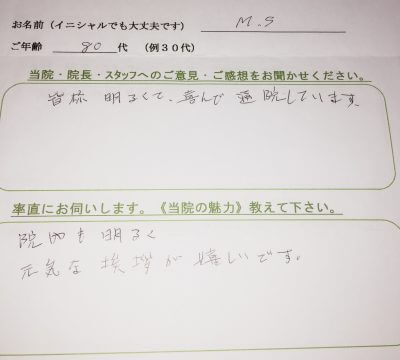 お名前(イニシャルでも大丈夫です) M.S
ご年齢 80 代 (例30代)
当院・院長・スタッフへのご意見・ご感想をお聞かせください。
皆様 明るくて、喜んで 通院しています
率直にお伺いします。《当院の魅力》教えて下さい。
院内も明るく
元気な挨拶が嬉しいです。